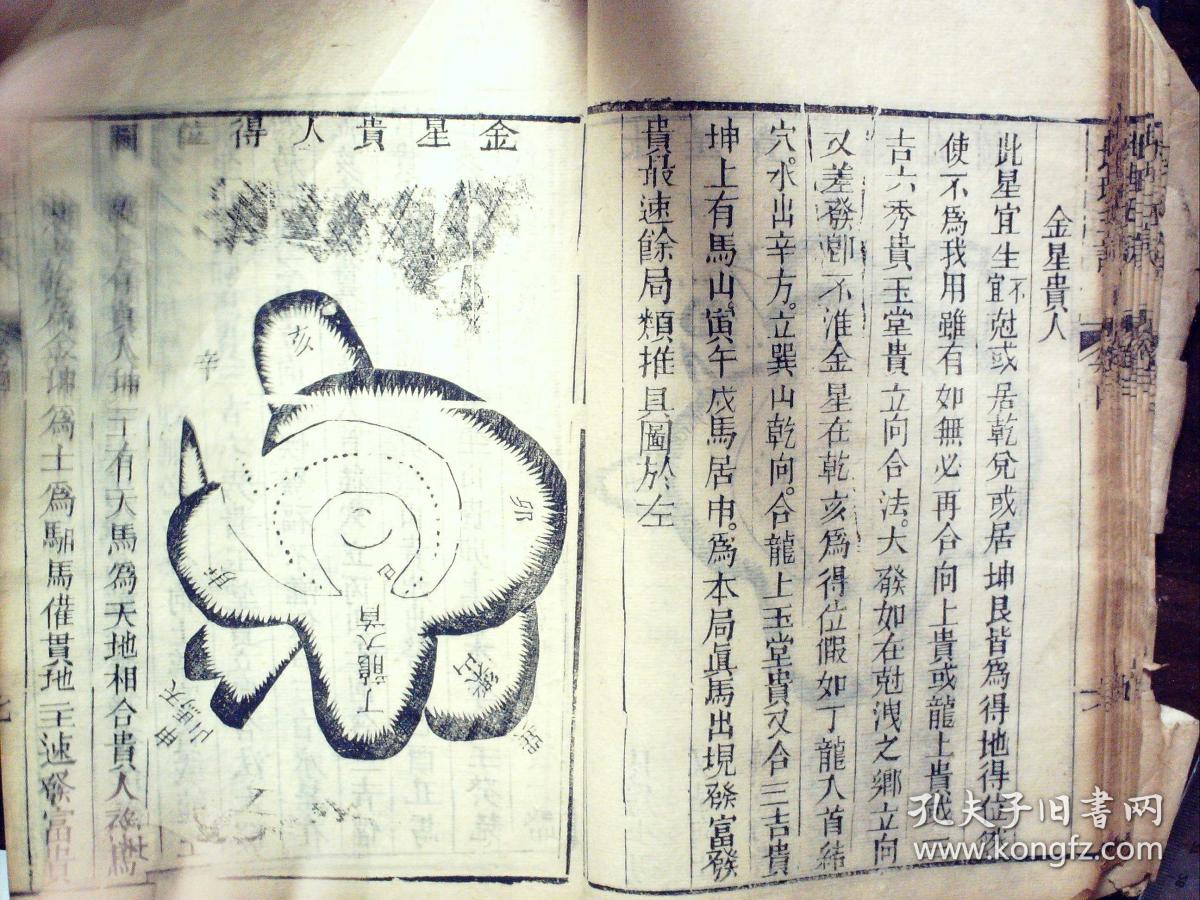 金星貴人
此星宜生宜不尅或居乾兌或居坤艮皆為得地得位
使不為我用雖有如無必再合向上貴或龍上貴或
吉六秀貴玉堂貴立向合法。大發如在尅洩之鄉立向
又差發卽不准金星在乾亥為得位假如丁龍入首結
穴。水出辛方。立巽山乾向。合龍上玉堂貴又合三吉貴
坤上有馬山。寅午戌馬居申。為本局眞馬出現發富發
貴最速餘局類推具圖於左
金星貴人得位
圖
亥
辛
卯
巳
丁龍入首
天馬山
上有貴人坤上有天馬為天地相合貴人
乾為金坤為土為馹馬催貫地主速發富貴
孔夫子旧书网
www.kongfz.com